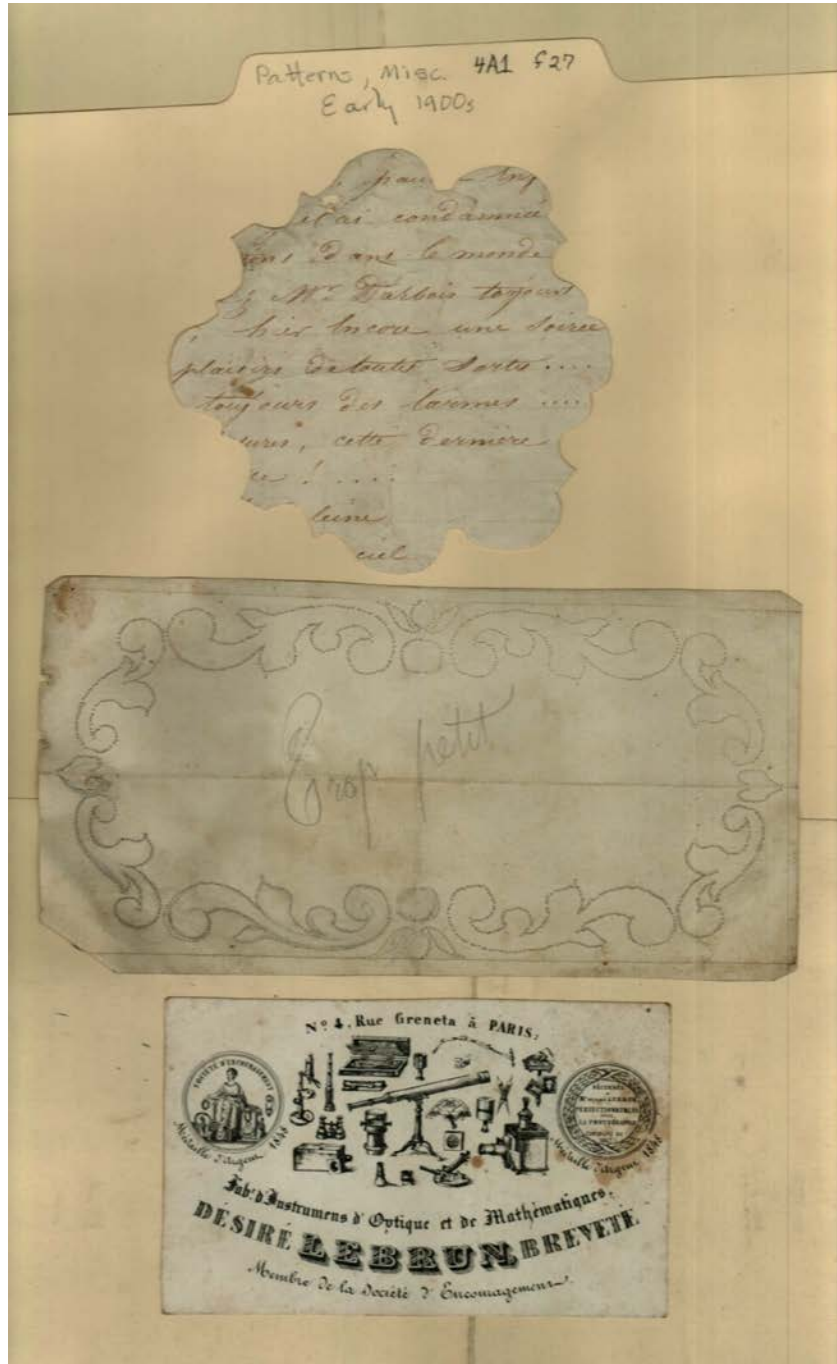 Patterns, Misc. 4A1 f27
Early 1900s
condamnée
dans le monde
Mr. Darbois toujours
hier encore une soirée
plaisirs de toutes sortes....
toujours des larmes ....
ures, cette dernière
ce ! ....
leine
ciel
Trop petit
No. 4, Rue Greneta à PARIS,
SOCIÉTÉ D'ENCOURAGEMENT
Médaille d'Argent 1848
DÉCERNÉE
LA PHOTOGRAPHIE
Médaille d'Argent 1848
Fabt. d'Instrumens d'Optique et de Mathématiques,
DÉSIRÉ LEBRUN, BREVETÉ
Membre de la Société d'Encouragement